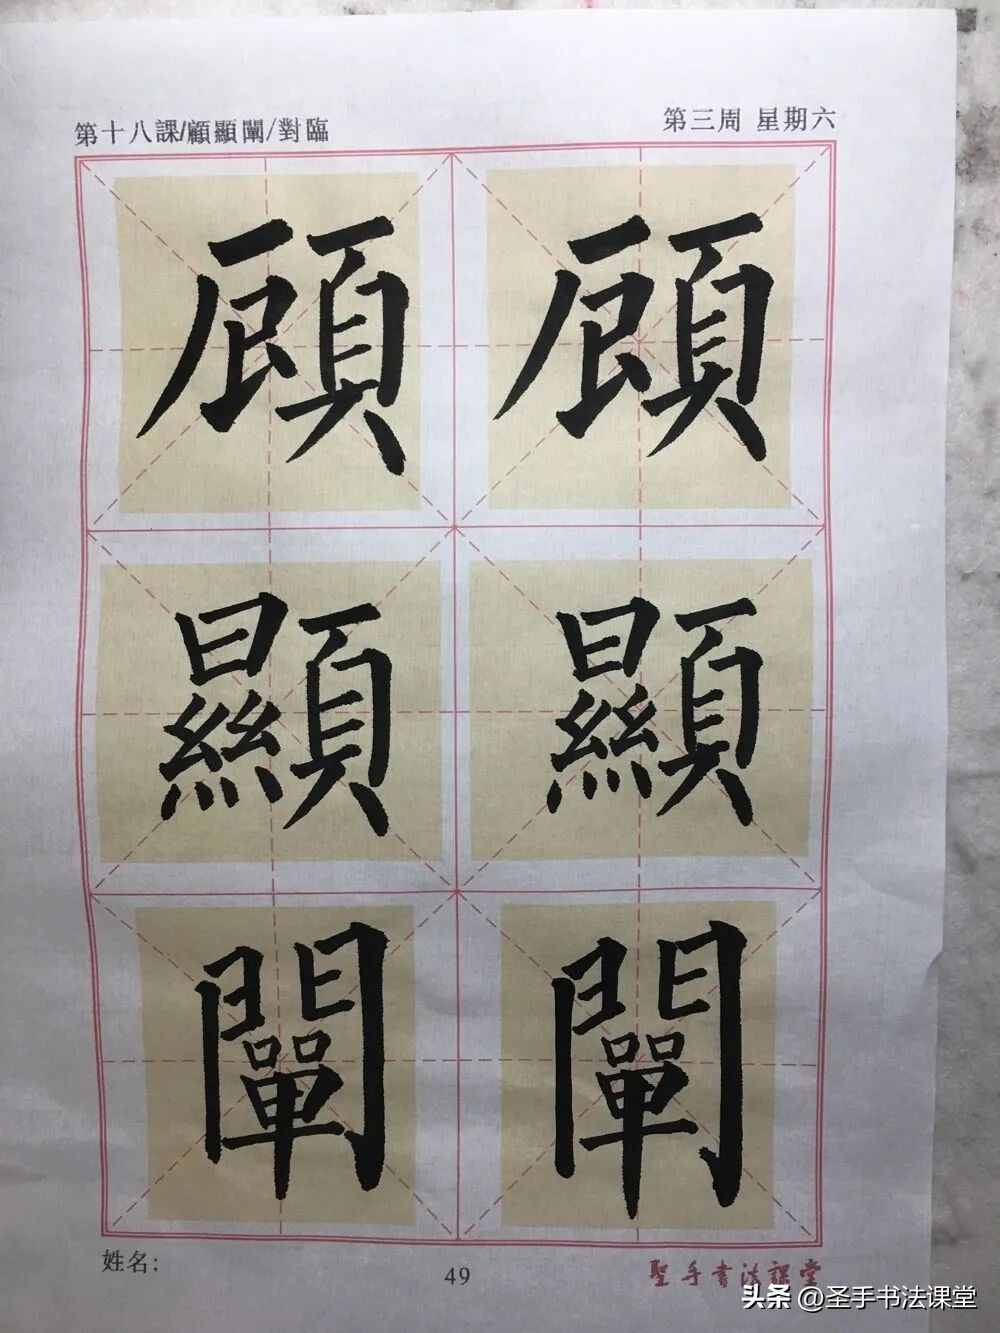 第十八課/顧顯闡/對臨
第三周 星期六
顧 顧
顯 顯
闡 闡
姓名：
49
聖手書法課堂
头条 @圣手书法课堂